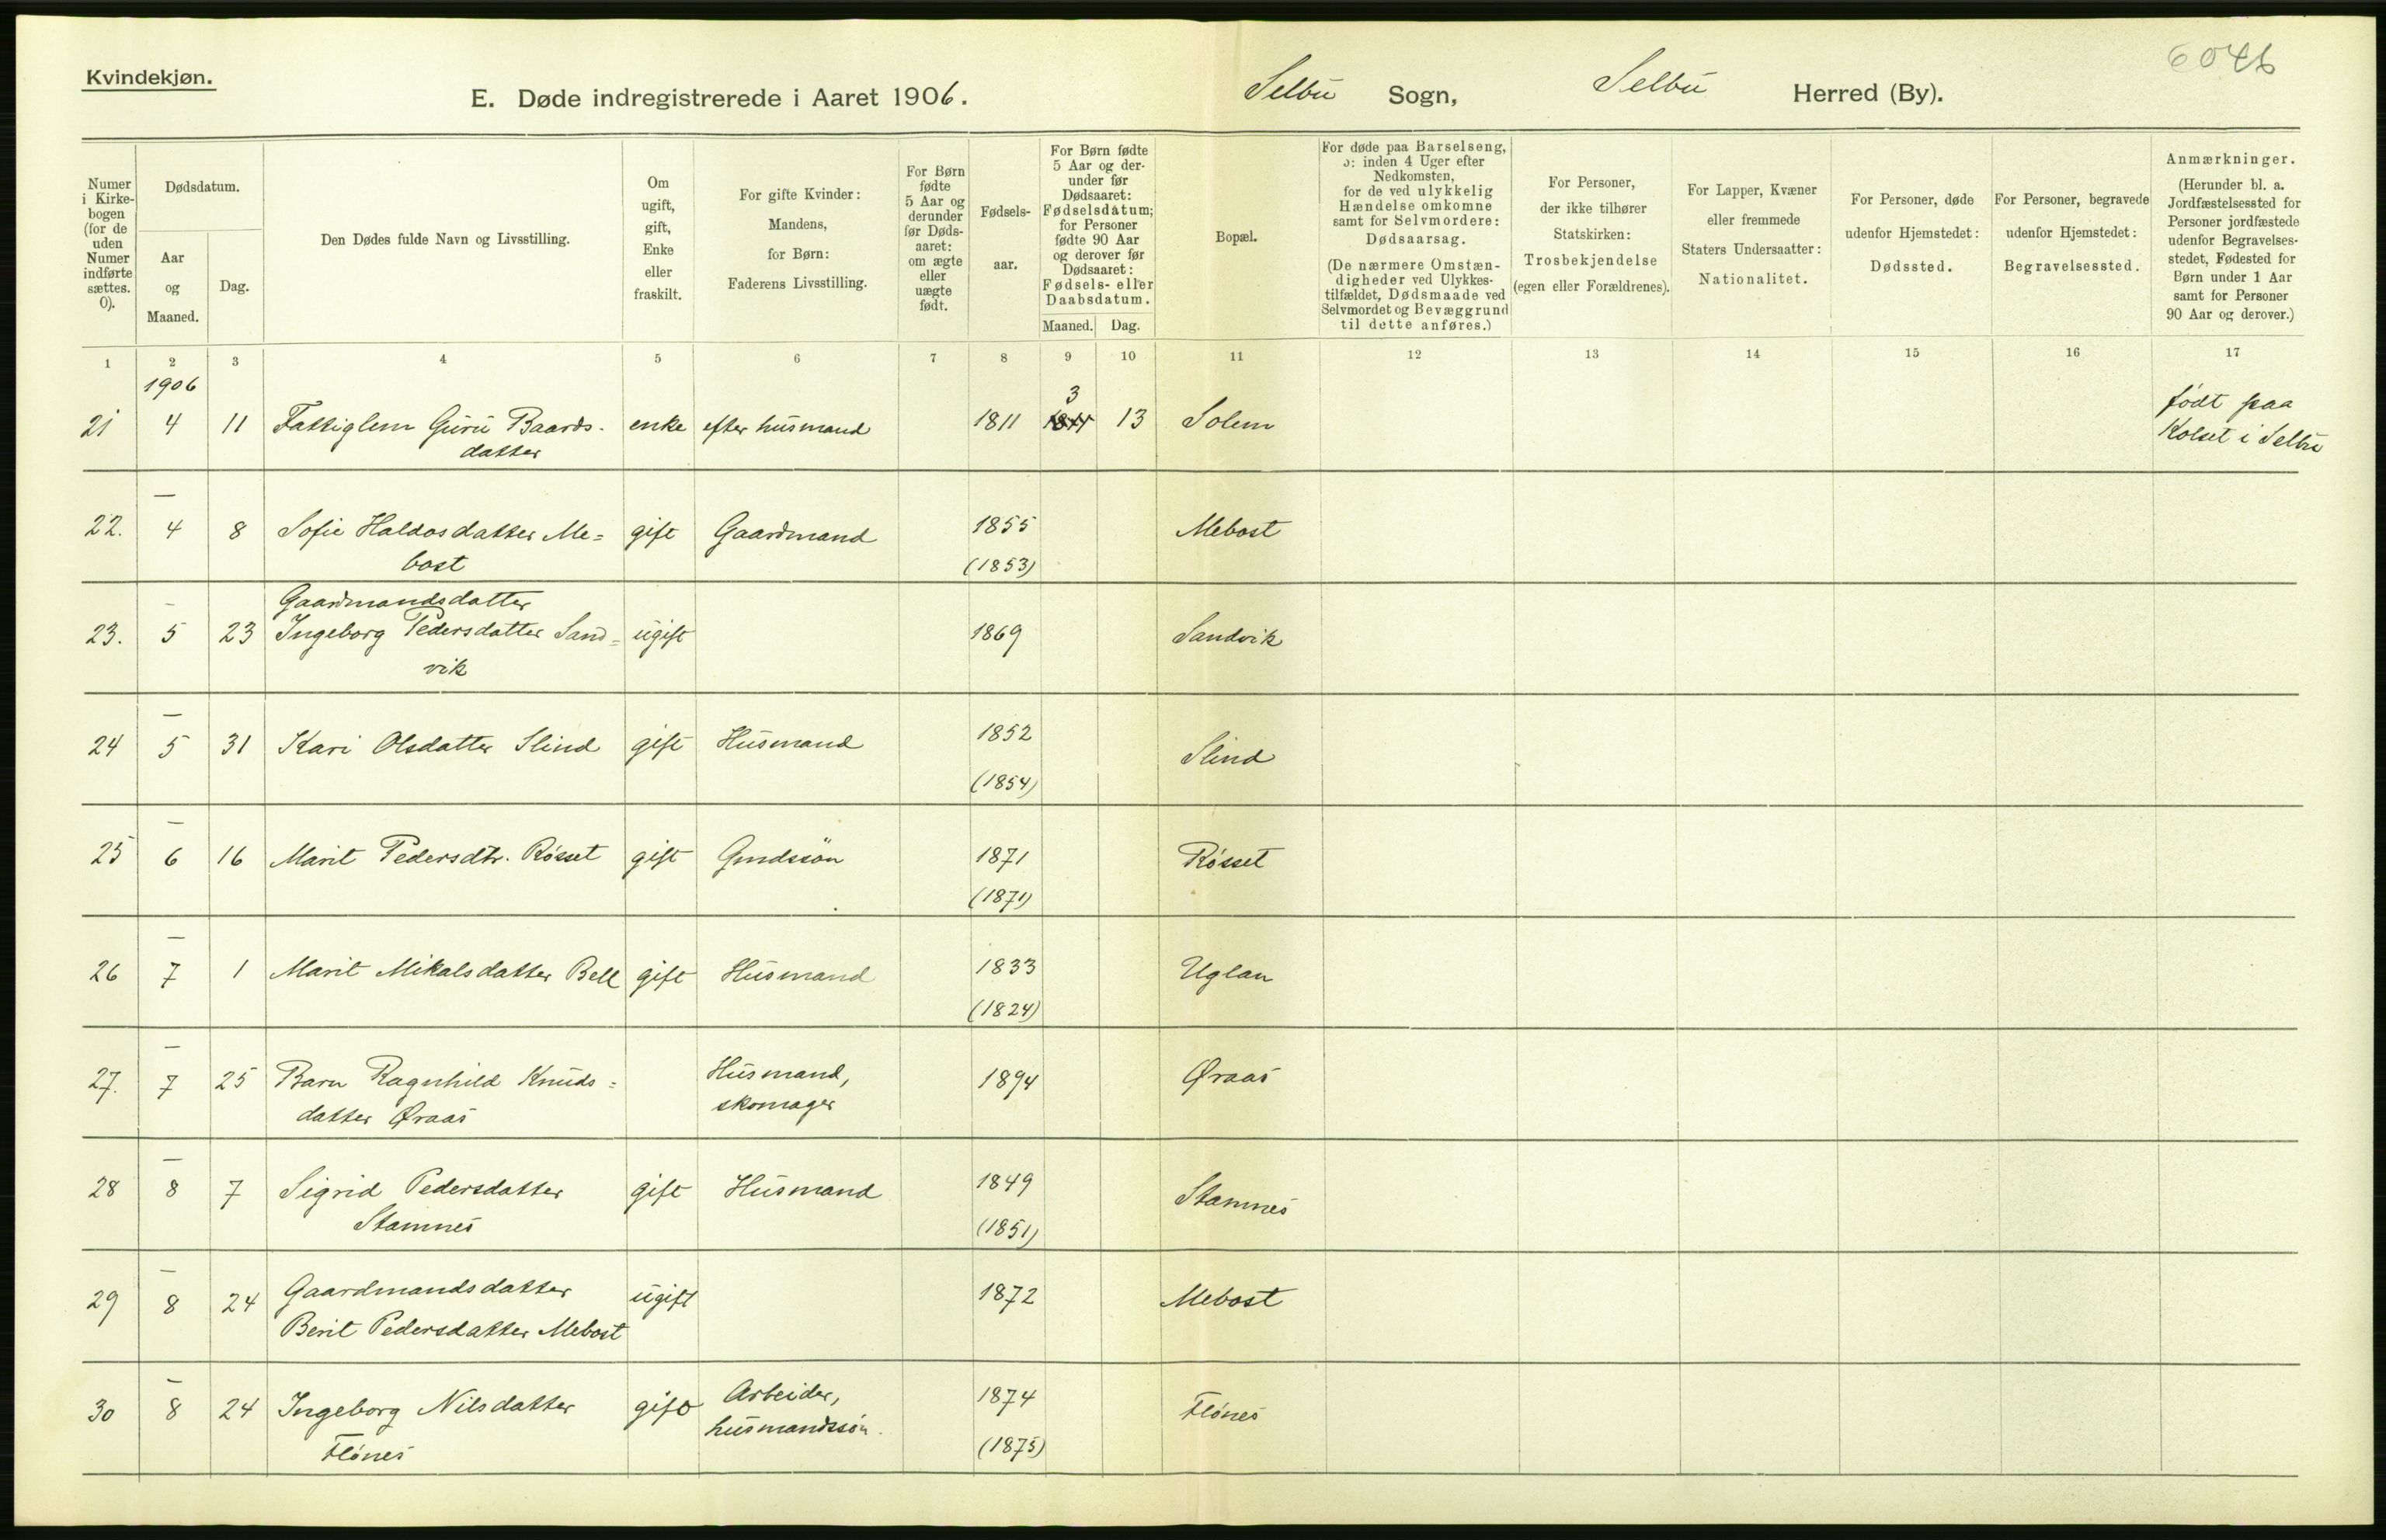 Kvindekjøn.
E. Døde indregistrerede i Aaret 1906.
Selbu Sogn, Selbu Herred (By).
6046
Numer i Kirke-bogen (for de uden Numer indførte sættes. 0).
Dødsdatum.
Aar og Maaned.
Dag.
Den Dødes fulde Navn og Livsstilling.
Om ugift, gift, Enke eller fraskilt.
For gifte Kvinder: Mandens, for Børn: Faderens Livsstilling.
For Børn fødte 5 Aar og derunder før Døds-aaret: om ægte eller uægte født.
Fødsels-aar.
For Børn fødte 5 Aar og der-under før Dødsaaret: Fødselsdatum; for Personer fødte 90 Aar og derover før Dødsaaret: Fødsels- eller Daabsdatum.
Maaned. Dag.
Bopæl.
For døde paa Barselseng, ɔ: inden 4 Uger efter Nedkomsten, for de ved ulykkelig Hændelse omkomne samt for Selvmordere: Dødsaarsag. (De nærmere Omstæn-digheder ved Ulykkes-tilfældet, Dødsmaade ved Selvmordet og Bevæggrund til dette anføres.)
For Personer, der ikke tilhører Statskirken: Trosbekjendelse (egen eller Forældrenes).
For Lapper, Kvæner eller fremmede Staters Undersaatter: Nationalitet.
For Personer, døde udenfor Hjemstedet: Dødssted.
For Personer, begravede udenfor Hjemstedet: Begravelsessted.
Anmærkninger. (Herunder bl. a. Jordfæstelsessted for Personer jordfæstede udenfor Begravelses-stedet, Fødested for Børn under 1 Aar samt for Personer 90 Aar og derover.)
1 2 3 4 5 6 7 8 9 10 11 12 13 14 15 16 17
1906 3 født paa
21 4 11 Fattiglem Guru Baards- enke efter husmand 1811 1811 13 Solem Kolset i Selbu
datter
22. – 4 8 Sofie Haldosdatter Me= gift Gaardmand 1855 Mebost
bost (1853)
Gaardmandsdatter
23. – 5 23 Ingeborg Pedersdatter Sand= ugift 1869 Sandvik
vik
24 – 5 31 Kari Olsdatter Slind gift Husmand 1852 Slind
(1854)
25 – 6 16 Marit Pedersdtr. Rósset gift Gmdssön 1871 Rósset
(1871)
26 – 7 1 Marit Mikalsdatter Bell gift Husmand 1833 Uglan
(1824)
27. – 7 25 Barn Ragnhild Knuds= Husmand, 1894 Øraas
datter Øraas skomager
28 – 8 7 Sigrid Pedersdatter gift Husmand 1849 Stamnes
Stamnes (1851)
29 – 8 24 Gaardmandsdatter ugift 1872 Mebost
Berit Pedersdatter Mebost
30 – 8 24 Ingeborg Nilsdatter gift Arbeider, 1874 Flónes
Flónes husmandssón. (1875)